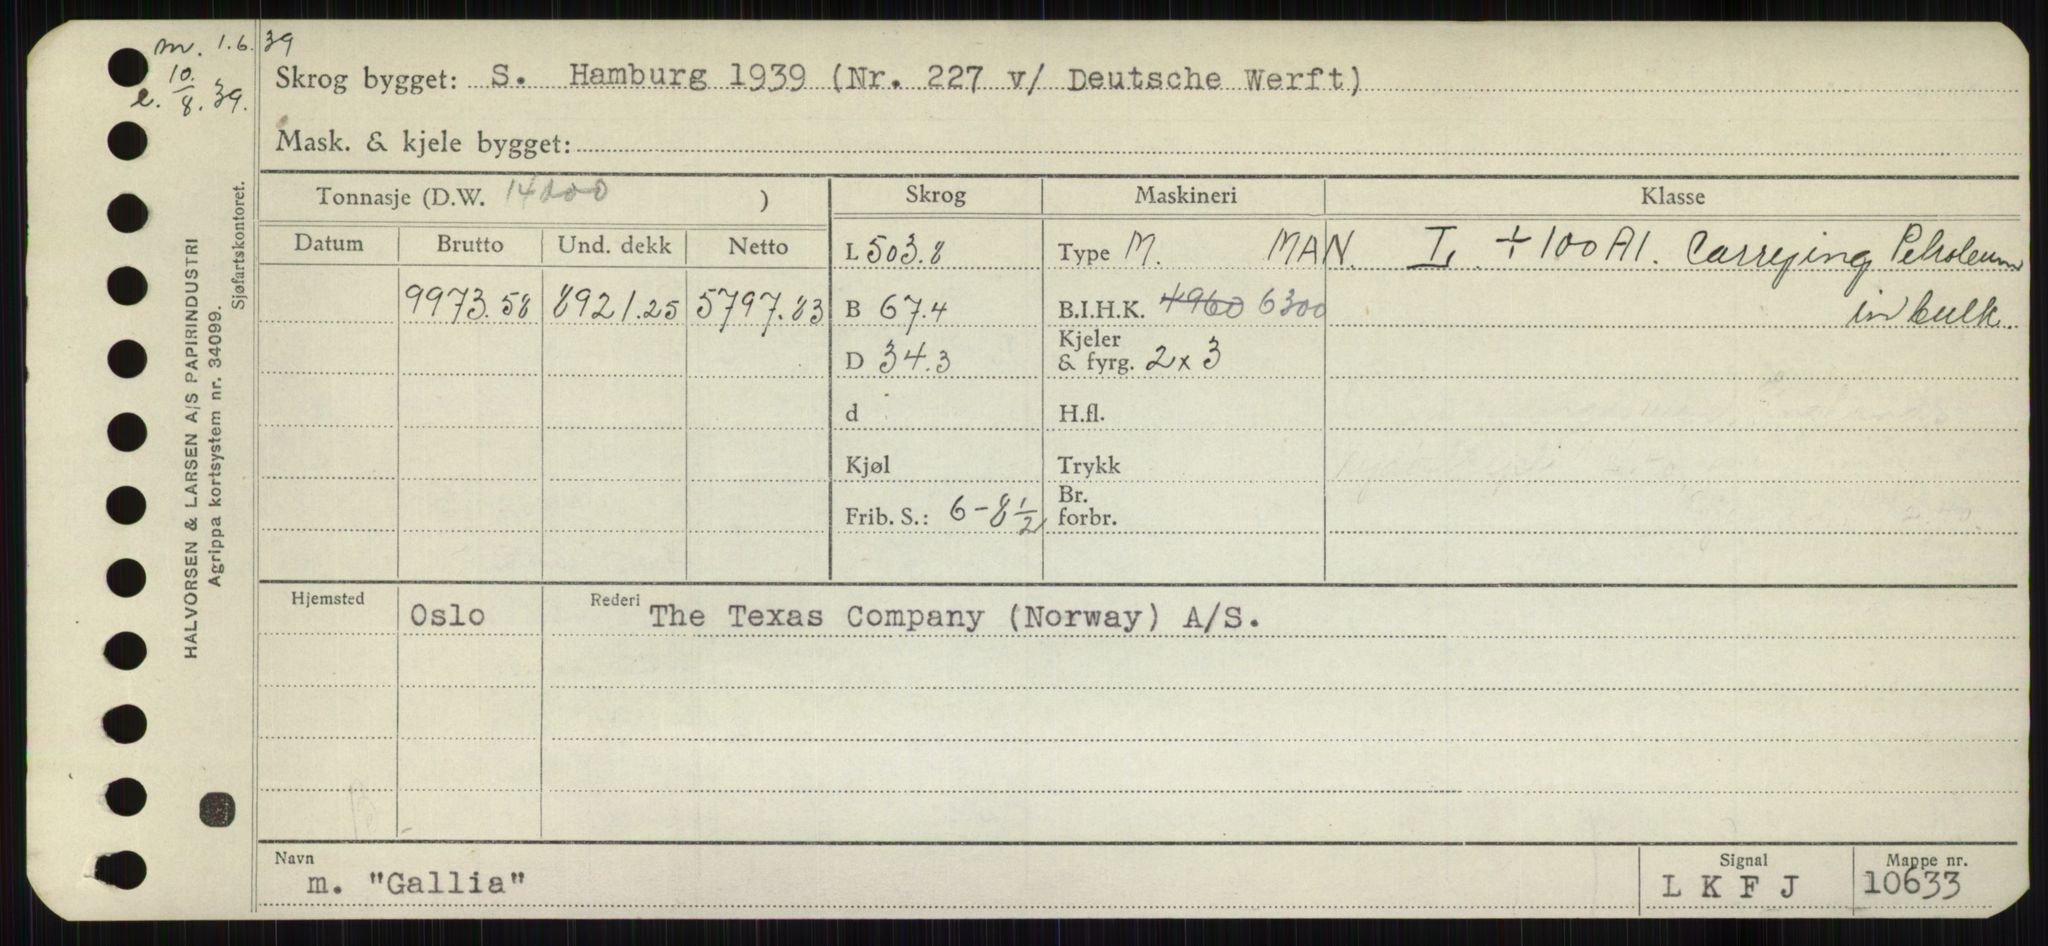 m. 1.6.39
e. 10/8.39.
Skrog bygget: S. Hamburg 1939 (Nr. 227 v/ Deutsche Werft)
Mask. & kjele bygget:
Tonnasje (D.W. 14000 )
Skrog
Maskineri
Klasse
Datum
Brutto
Und. dekk
Netto
9973.58
8921.25
5797.83
L 503.8
B 67.4
D 34.3
d
Kjøl
Frib. S.: 6-8½
Type M. MAN.
B.I.H.K. 4960 6300
Kjeler
& fyrg. 2x3
H.fl.
Trykk
Br.
forbr.
L, +100A1. Carrying Petroleum
in bulk.
Hjemsted
Oslo
Rederi
The Texas Company (Norway) A/S.
Navn
m. "Gallia"
Signal
LKFJ
Mappe nr.
10633
HALVORSEN & LARSEN A/S PAPIRINDUSTRI
Agrippa kortsystem nr. 34099.
Sjøfartskontoret.